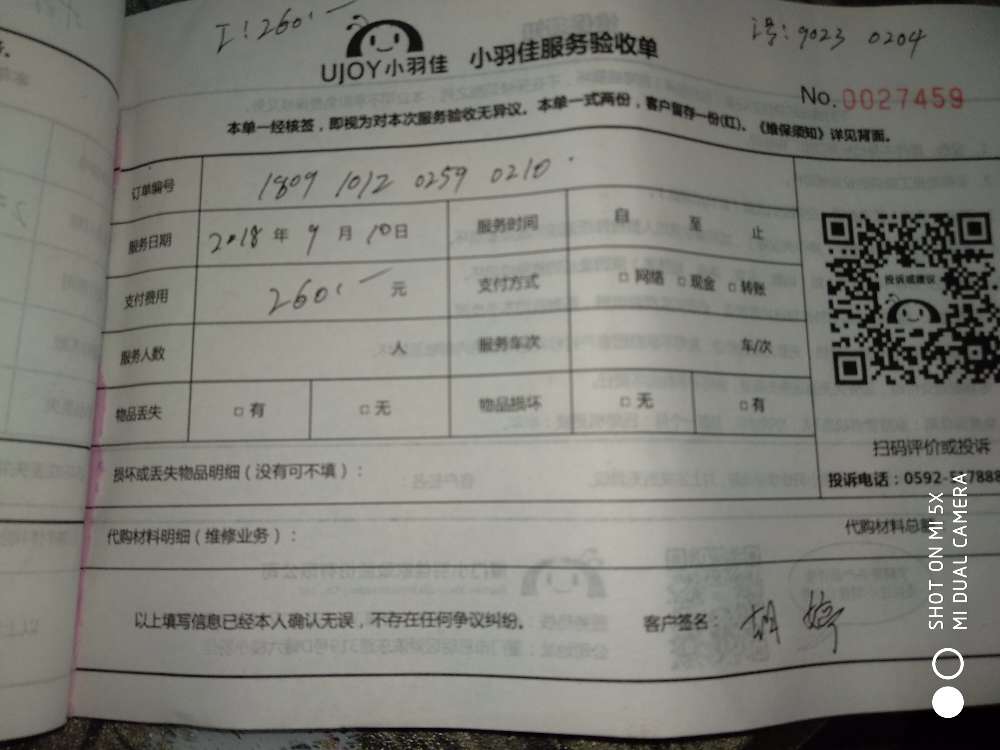 260.一
9023 0204
UJOY小羽佳 小羽佳服务验收单
No.0027459
本单一经核签，即视为对本次服务验收无异议。本单一式两份，客户留存一份(红)。《维保须知》详见背面。
订单编号 1809 1012 0259 0210
服务日期 2018 年 9 月 10 日 服务时间 自 至 止
支付费用 260.一 元 支付方式 □ 网络 □ 现金 □ 转账
投诉或建议
服务人数 人 服务车次 车/次
物品丢失 □ 有 □ 无 物品损坏 □ 无 □ 有
扫码评价或投诉
损坏或丢失物品明细（没有可不填）：
投诉电话：0592-5
代购材料明细（维修业务）： 代购材料总
以上填写信息已经本人确认无误，不存在任何争议纠纷。 客户签名： 胡婷
SHOT ON MI 5X
MI DUAL CAMERA